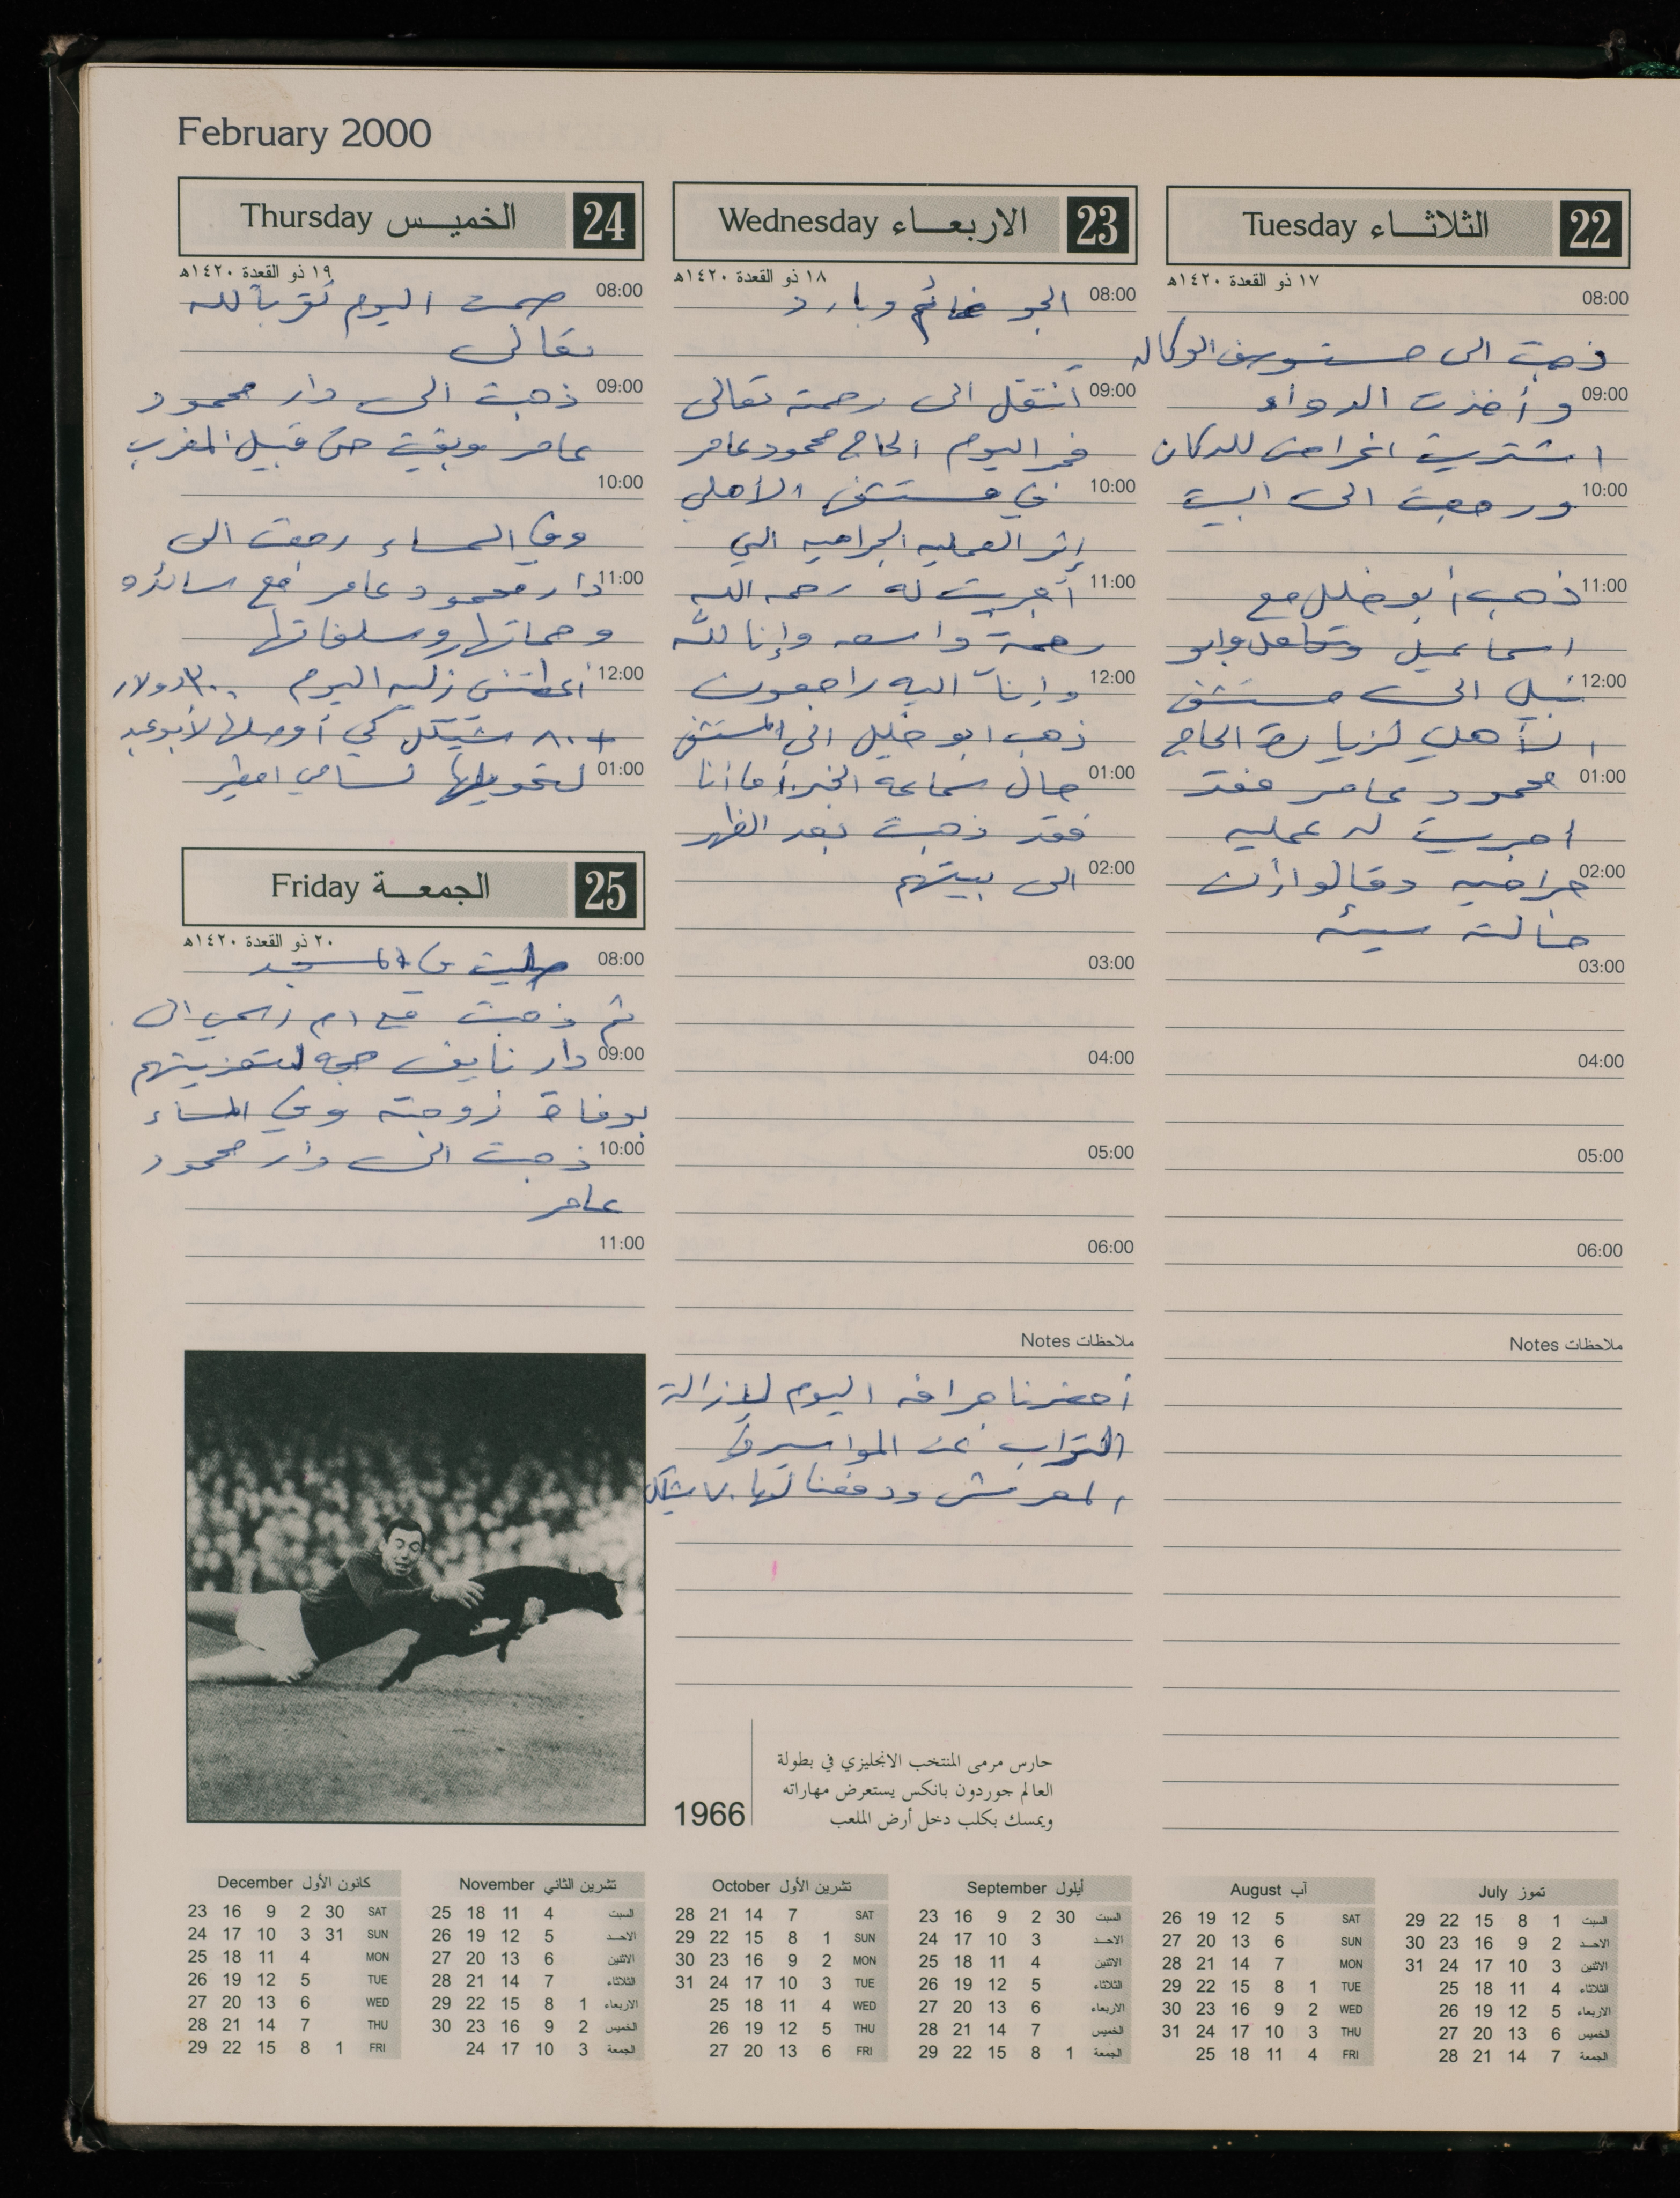 February 2000
22 الثلاثاء Tuesday
١٧ ذو القعدة ١٤٢٠هـ
08:00
ذهبت الى مستوصف الوكاله
09:00 وأخذت الدواء
اشتريت اغراض للدكان
10:00 ورجعت الى البيت
11:00 ذهب أبو خليل مع
اسماعيل وابو
12:00 نبيل الى مستشفى
الأهلي لزيارة الحاج
01:00 محمود عامر فقد
اجريت له عمليه
02:00 جراحيه وقالوا أن
حالته سيئه
03:00
04:00
05:00
06:00
ملاحظات Notes
23 الاربعاء Wednesday
١٨ ذو القعدة ١٤٢٠هـ
08:00 الجو غائم وبارد
09:00 أنتقل الى رحمة تعالى
فجر اليوم الحاج محمود عامر
10:00 في مستشفى الأهلي
إثر العمليه الجراحيه التي
11:00 أجريت له رحمه الله
رحمة واسعه وإنا لله
12:00 وإنآ اليه راجعون
ذهب ابو خليل الى المستشفى
01:00 حال سماعه الخبر أما أنا
فقد ذهبت بعد الظهر
02:00 الى بيتهم
03:00
04:00
05:00
06:00
ملاحظات Notes
أحضرنا جرافه اليوم لإزالة
التراب عن المواسير في
المعرش ودفعنا لها ٧٠ شيكل
24 الخميس Thursday
١٩ ذو القعدة ١٤٢٠هـ
08:00 صمت اليوم تقرباً لله
تعالى
09:00 ذهبت الى دار محمود
عامر وبقيت حتى قبيل المغرب
10:00
وفي المساء رجعت الى
11:00 دار محمود عامر مع سائده
وحماتها وسلفاتها
12:00 أعطتني اليوم ٣٠٠ دولار
+ ٨٠٠ شيكل كي أوصلها لأبو عبد
01:00 لتحويلها لسامي
25 الجمعة Friday
٢٠ ذو القعدة ١٤٢٠هـ
08:00 صليت في المسجد
ثم ذهبت مع ام الى
09:00 دار نايف لتعزيتهم
بوفاة زوجته وفي المساء
10:00 ذهبت الى دار محمود
عامر
11:00
1966
حارس مرمى المنتخب الانجليزي في بطولة
العالم جوردون بانكس يستعرض مهاراته
ويمسك بكلب دخل أرض الملعب
تموز July
29 22 15 8 1 السبت
30 23 16 9 2 الاحد
31 24 17 10 3 الاثنين
25 18 11 4 الثلاثاء
26 19 12 5 الاربعاء
27 20 13 6 الخميس
28 21 14 7 الجمعة
آب August
26 19 12 5 SAT
27 20 13 6 SUN
28 21 14 7 MON
29 22 15 8 1 TUE
30 23 16 9 2 WED
31 24 17 10 3 THU
25 18 11 4 FRI
أيلول September
23 16 9 2 30 السبت
24 17 10 3 الاحد
25 18 11 4 الاثنين
26 19 12 5 الثلاثاء
27 20 13 6 الاربعاء
28 21 14 7 الخميس
29 22 15 8 1 الجمعة
تشرين الأول October
28 21 14 7 SAT
29 22 15 8 1 SUN
30 23 16 9 2 MON
31 24 17 10 3 TUE
25 18 11 4 WED
26 19 12 5 THU
27 20 13 6 FRI
تشرين الثاني November
25 18 11 4 السبت
26 19 12 5 الاحد
27 20 13 6 الاثنين
28 21 14 7 الثلاثاء
29 22 15 8 1 الاربعاء
30 23 16 9 2 الخميس
24 17 10 3 الجمعة
كانون الأول December
23 16 9 2 30 SAT
24 17 10 3 31 SUN
25 18 11 4 MON
26 19 12 5 TUE
27 20 13 6 WED
28 21 14 7 THU
29 22 15 8 1 FRI